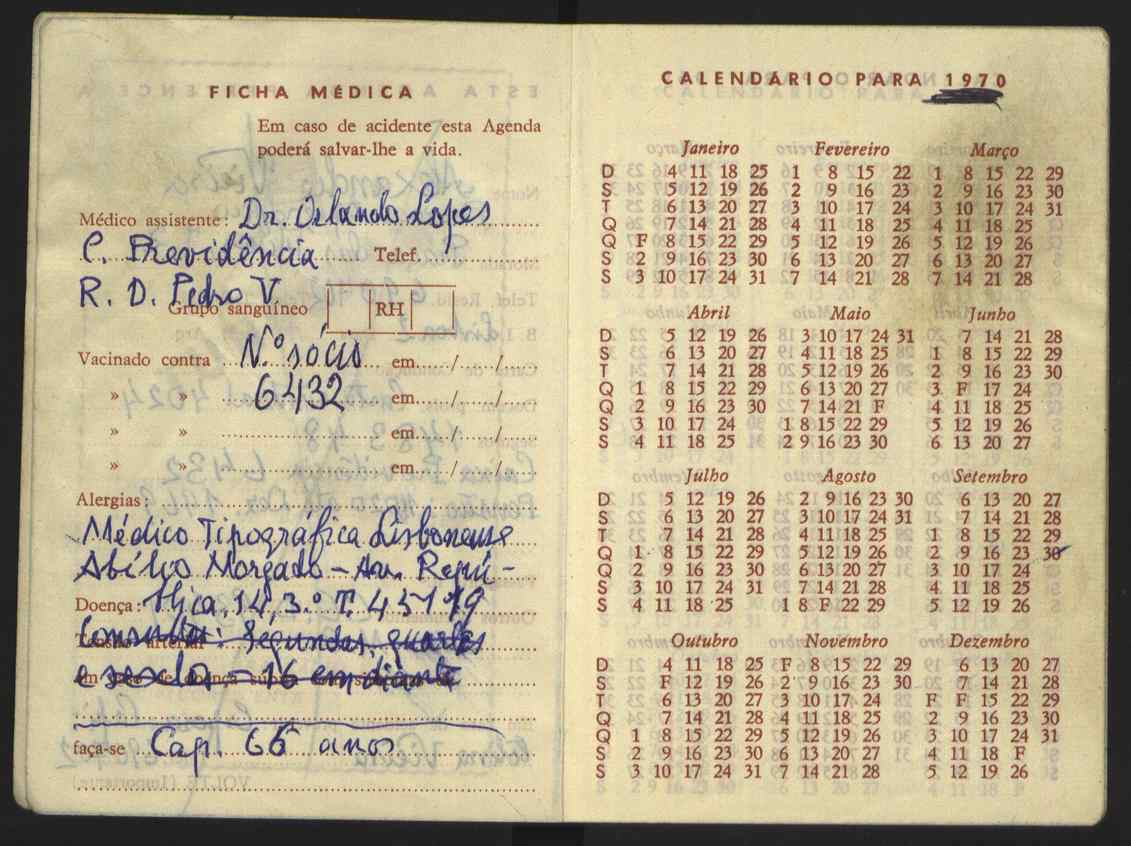 FICHA MÉDICA
Em caso de acidente esta Agenda
poderá salvar-lhe a vida.
Médico assistente: Dr. Orlando Lopes
C. Previdência Telef.
R. D. Pedro V.
Grupo sanguíneo RH
Vacinado contra N.º sócio em / /
» » 6432 em / /
» » em / /
» » em / /
Alergias:
Médico Tipográfica Lisbonense
Abílio Morgado - Av. Repú-
Doença: blica, 14, 3.º T. 4 5 1 9 19
Consultas: Segundas, quartas
e sextas - 16 em diante
faça-se Cap. 66 anos
CALENDÁRIO PARA 1970
Janeiro Fevereiro Março
D 4 11 18 25 1 8 15 22 1 8 15 22 29
S 5 12 19 26 2 9 16 23 2 9 16 23 30
T 6 13 20 27 3 10 17 24 3 10 17 24 31
Q 7 14 21 28 4 11 18 25 4 11 18 25
Q F 8 15 22 29 5 12 19 26 5 12 19 26
S 2 9 16 23 30 6 13 20 27 6 13 20 27
S 3 10 17 24 31 7 14 21 28 7 14 21 28
Abril Maio Junho
D 5 12 19 26 3 10 17 24 31 7 14 21 28
S 6 13 20 27 4 11 18 25 1 8 15 22 29
T 7 14 21 28 5 12 19 26 2 9 16 23 30
Q 1 8 15 22 29 6 13 20 27 3 F 17 24
Q 2 9 16 23 30 7 14 21 F 4 11 18 25
S 3 10 17 24 1 8 15 22 29 5 12 19 26
S 4 11 18 25 2 9 16 23 30 6 13 20 27
Julho Agosto Setembro
D 5 12 19 26 2 9 16 23 30 6 13 20 27
S 6 13 20 27 3 10 17 24 31 7 14 21 28
T 7 14 21 28 4 11 18 25 1 8 15 22 29
Q 1 8 15 22 29 5 12 19 26 2 9 16 23 30
Q 2 9 16 23 30 6 13 20 27 3 10 17 24
S 3 10 17 24 31 7 14 21 28 4 11 18 25
S 4 11 18 25 1 8 F 22 29 5 12 19 26
Outubro Novembro Dezembro
D 4 11 18 25 F 8 15 22 29 6 13 20 27
S F 12 19 26 2 9 16 23 30 7 14 21 28
T 6 13 20 27 3 10 17 24 F F 15 22 29
Q 7 14 21 28 4 11 18 25 2 9 16 23 30
Q 1 8 15 22 29 5 12 19 26 3 10 17 24 31
S 2 9 16 23 30 6 13 20 27 4 11 18 F
S 3 10 17 24 31 7 14 21 28 5 12 19 26